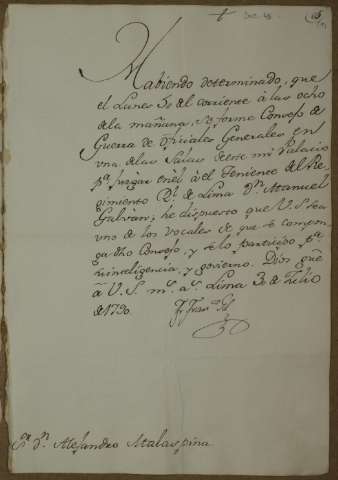 Habiendo determinado, que
el Lunes 5,, del corriente à las ocho
de la mañana, se forme Consejo de
Guerra de Oficiales Generales en
una de las Salas de este mi Palacio
pª juzgar en èl à el Teniente del Re
gimiento Rl. de Lima Dn Manuel
Galvan; he dispuesto que V.S. sea
uno de los vocales de que se compon
ga dho Consejo, y se lo participo pª
su inteligencia, y govierno. Dios gue
à V.S. ms. as. Lima 3,, de Julio
de 1790.
Sr. Dn. Alejandro Malaspina